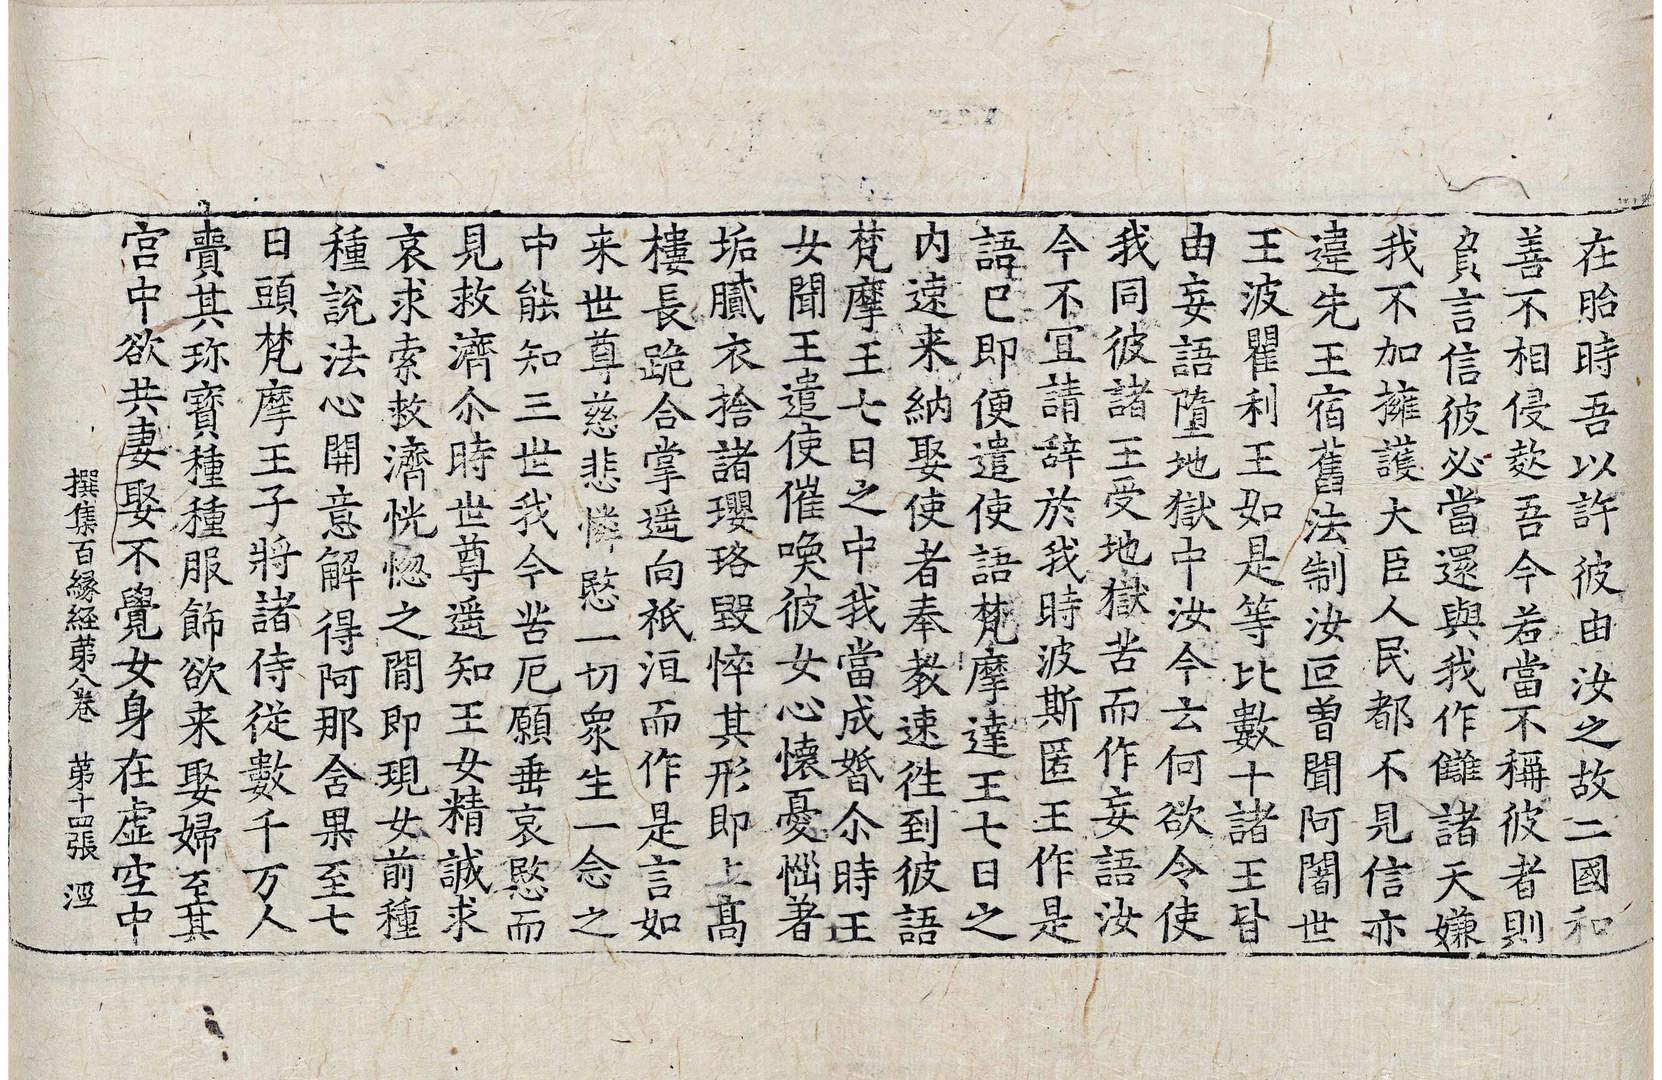 在胎時吾以許彼由汝之故二國和
善不相侵欺吾今若當不稱彼者則
負言信彼必當還與我作讎諸天嫌
我不加擁護大臣人民都不見信亦
違先王宿舊法制汝叵曽聞阿闍世
王波瞿利王如是等比數十諸王皆
由妄語墮地獄中汝今云何欲令使
我同彼諸王受地獄苦而作妄語汝
今不宜請辞於我時波斯匿王作是
語已即便遣使語梵摩達王七日之
内速来納娶使者奉教速徃到彼語
梵摩王七日之中我當成婚尒時王
女聞王遣使催喚彼女心懐憂惱著
垢膩衣捨諸瓔珞毀悴其形即上髙
樓長跪合掌遥向祇洹而作是言如
来世尊慈悲憐愍一切衆生一念之
中能知三世我今苦厄願垂哀愍而
見救濟尒時世尊遥知王女精誠求
哀求索救濟恍惚之間即現女前種
種說法心開意解得阿那含果至七
日頭梵摩王子將諸侍従數千万人
賷其珎寳種種服飾欲来娶婦至其
宫中欲共妻娶不覺女身在虚空中
撰集百縁経第八卷　第十四張　涇